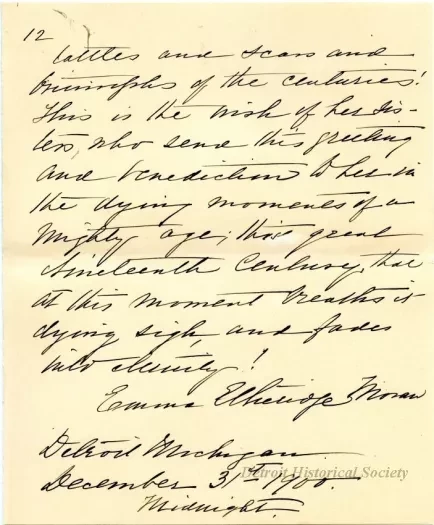 12
battles and scars and
triumphs of the centuries!
This is the wish of her sis-
ters, who send this greeting
and benediction to her in
the dying moments of a
mighty age; this great
Nineteenth Century, that
at this moment breaths it
dying sigh, and fades
into eternity!
Emma Etheridge Moran
Detroit Michigan
December 31st 1900.
Midnight.
Detroit Historical Society